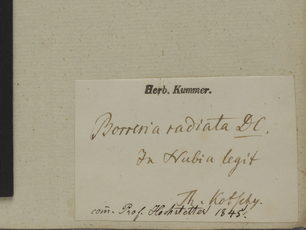 Herb. Kummer.
Borreria radiata DC.
In Nubia legit
Th. Kotschy.
com̃. Prof. Hochstetter 1845.